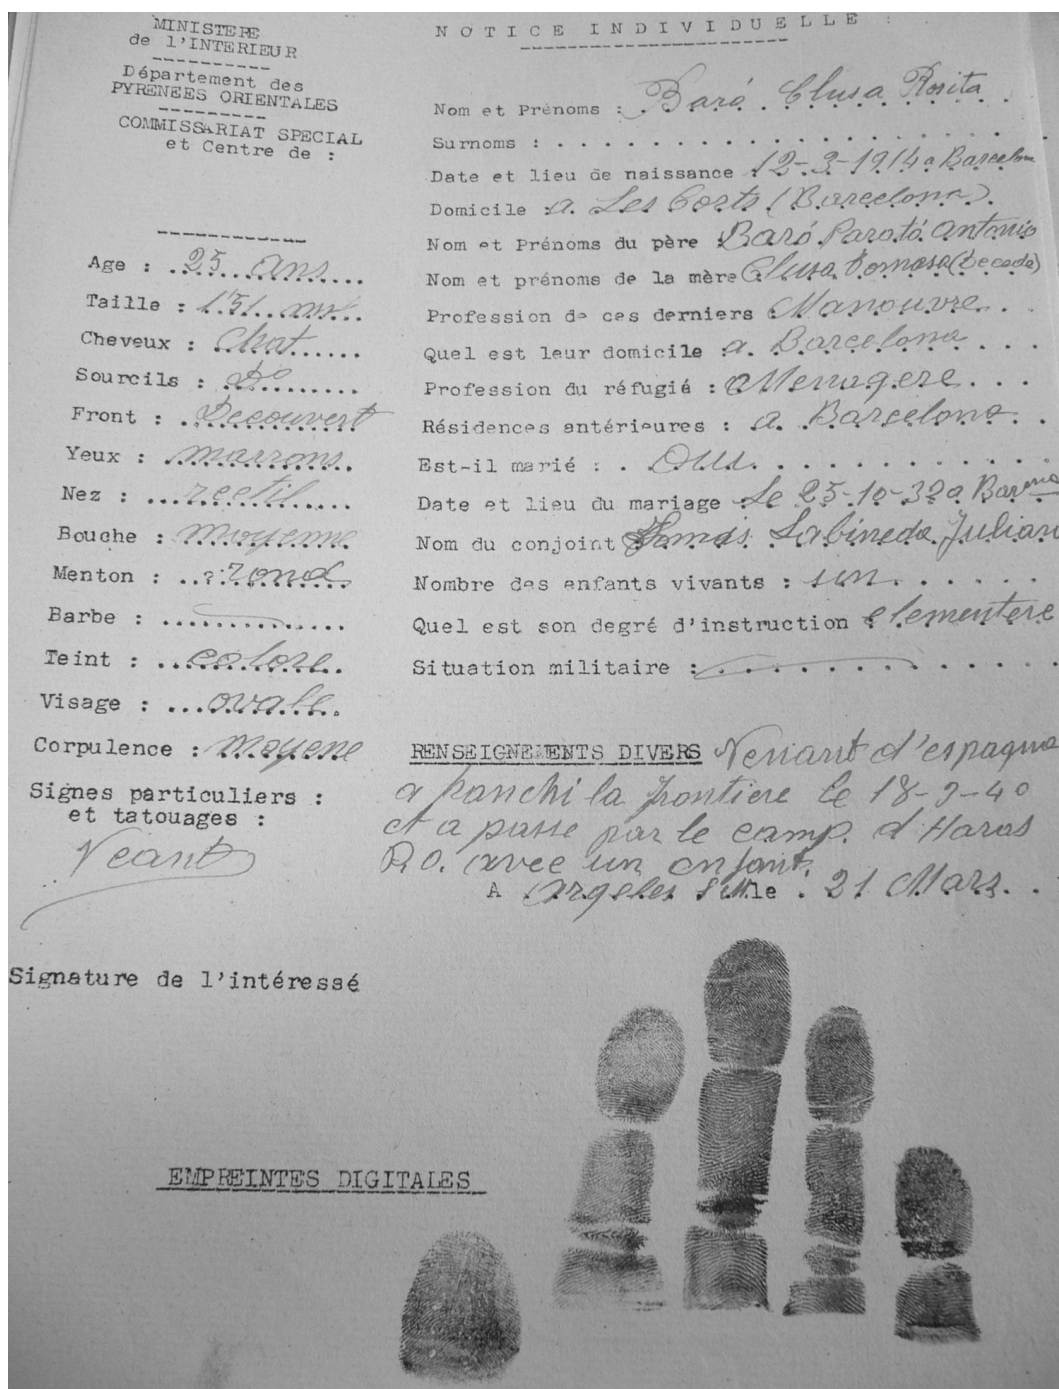 MINISTERE
de l'INTERIEUR
Département des
PYRENEES ORIENTALES
COMMISSARIAT SPECIAL
et Centre de :
Age : 25 ans
Taille : 1.51
Cheveux : Chat
Sourcils : Do
Front : Decouvert
Yeux : marrons
Nez : rectil
Bouche : moyenne
Menton : rond
Barbe :
Teint : colore
Visage : ovale
Corpulence : Moyene
Signes particuliers :
et tatouages :
Neant
Signature de l'intéressé
NOTICE INDIVIDUELLE :
Nom et Prénoms : Baró Clusa Rosita
Surnoms :
Date et lieu de naissance : 12-3-1914 a Barcelona
Domicile : a Les Corts (Barcelona)
Nom et Prénoms du père : Baró Antonio
Nom et prénoms de la mère Clusa Tomasa (Decede)
Profession de ces derniers Manouvre
Quel est leur domicile : a Barcelona
Profession du réfugié : Menagere
Résidences antérieures : a Barcelona
Est-il marié : Oui
Date et lieu du mariage le 25-10-32 a
Nom du conjoint Julian
Nombre des enfants vivants : un
Quel est son degré d'instruction elementere
Situation militaire :
RENSEIGNEMENTS DIVERS Venant d'espagne
a franchi la frontiere le 18-2-40
et a passe par le camp d'Haras
P.O. avec un enfant.
A Argeles le 21 Mars
EMPREINTES DIGITALES